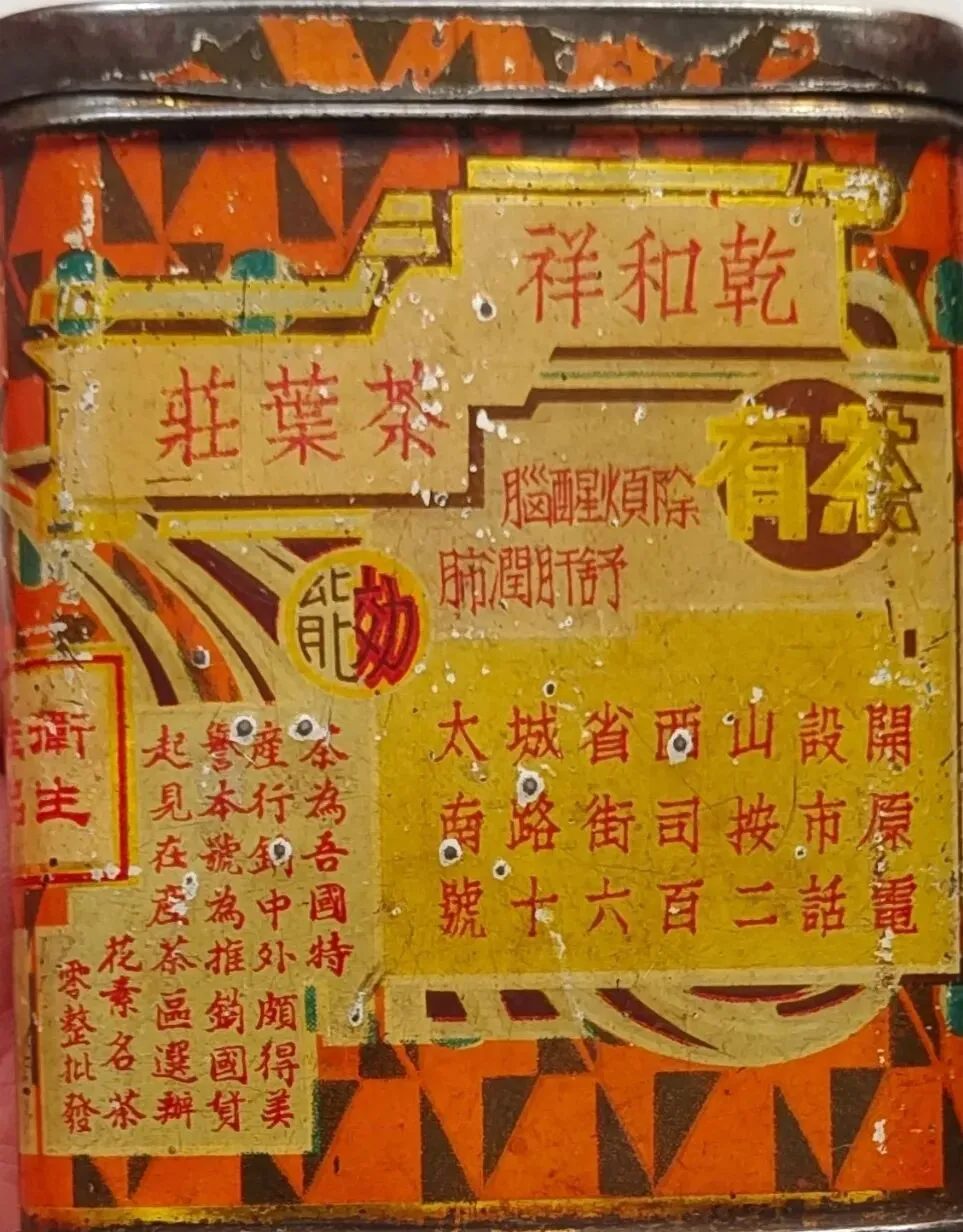 乾和祥
茶葉莊
茶有
効能
除煩醒腦
舒肝潤肺
開設山西省城太
原市按司街路南
電話二百六十號
茶為吾國特
産行銷中外頗得美
譽本號為推銷國貨
起見在産茶區選辦
花素名茶
零整批發
衛生